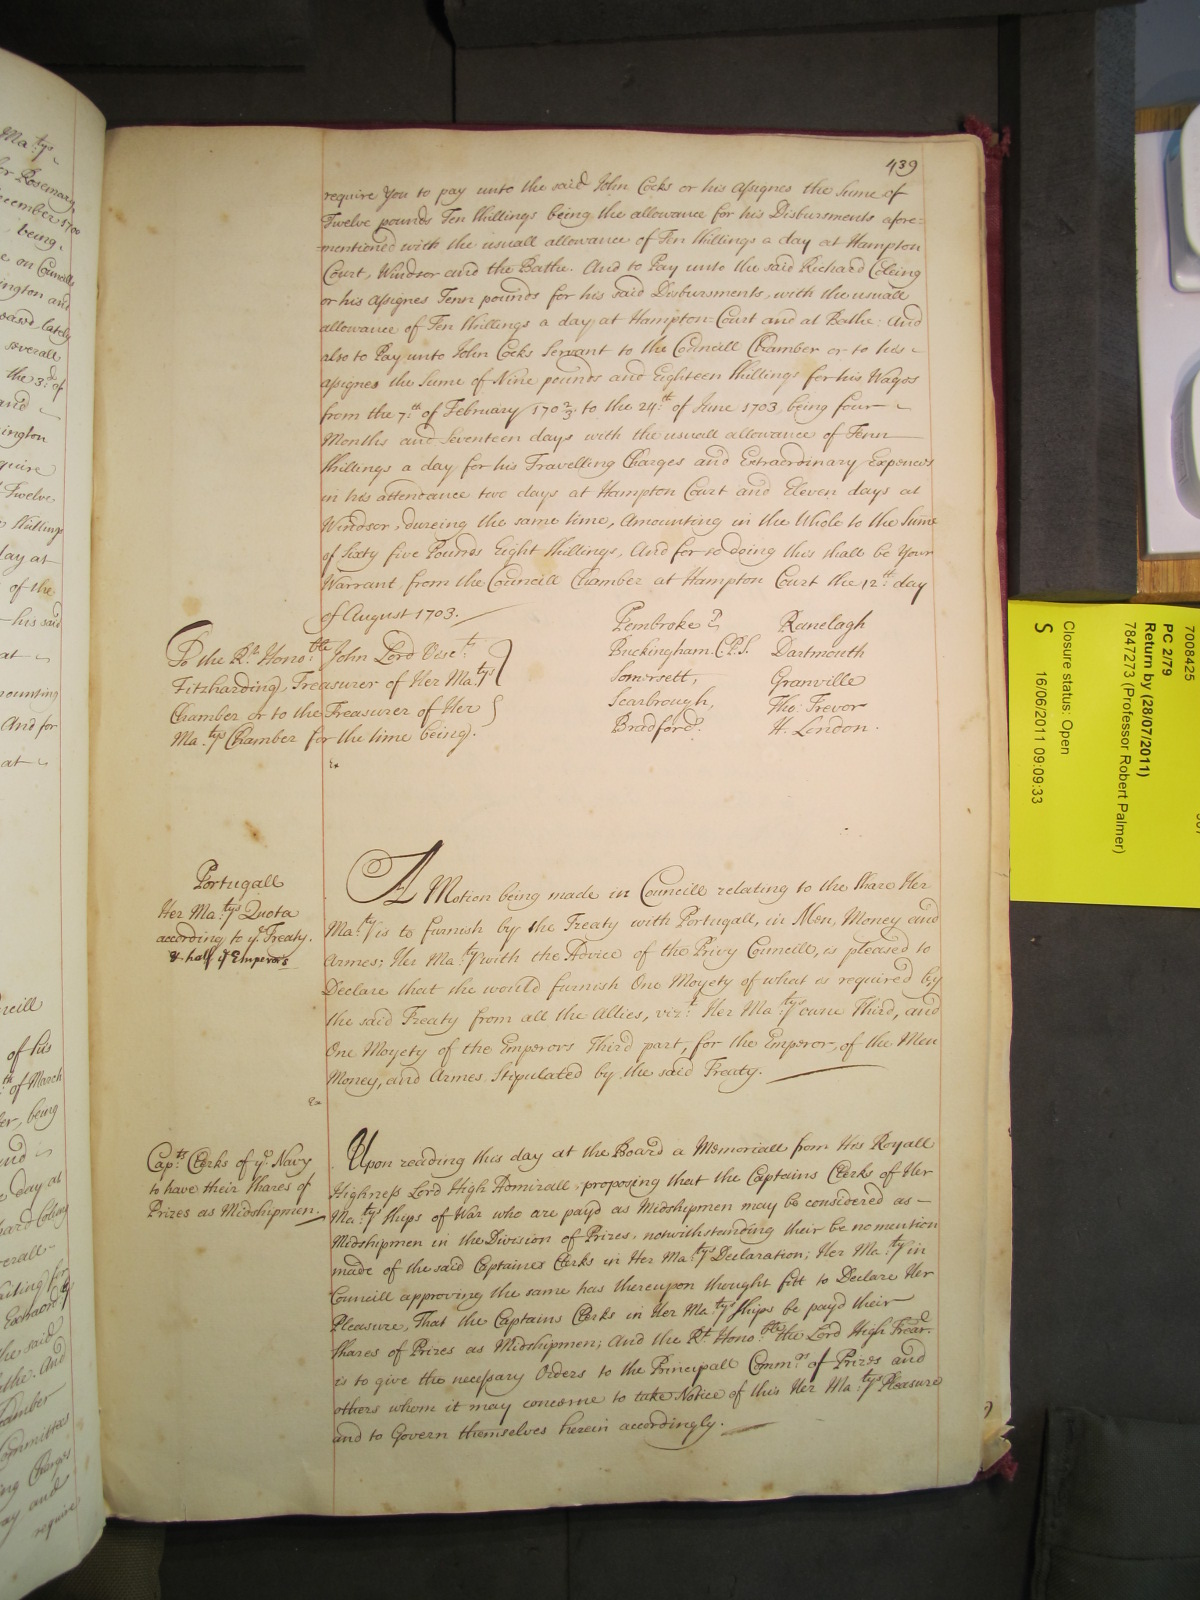 439
require You to pay unto the said John Cocks or his Assignes the Sume of
Twelve pounds Ten Shillings being the allowance for his Disbursments afore=
=mentioned with the usuall allowance of Ten Shillings a day at Hampton
Court, Windsor and the Bathe. And to Pay unto the said Richard Coleing
or his Assignes Tenn pounds for his said Disbursments, with the usuall
allowance of Ten Shillings a day at Hampton=Court and at Bathe: And
also to Pay unto John Cocks Servant to the Councill Chamber or to his
Assignes the Sume of Nine pounds and Eighteen Shillings for his Wages
from the 7th of February 170 2/3 to the 24th of June 1703, being four
Months and Seventeen days with the usuall allowance of Tenn
Shillings a day for his Travelling Charges and Extraordinary Expences
in his attendance two days at Hampton Court and Eleven days at
Windsor, dureing the same time, Amounting in the Whole to the Sume
of Sixty five Pounds Eight Shillings, And for so doing this shall be Your
Warrant, from the Councill Chamber at Hampton Court the 12th day
of August 1703.
To the Rt Honoble John Lord Visct
Fitzharding, Treasurer of Her Matys
Chamber or to the Treasurer of Her
Matys Chamber for the time being.
Pembroke P.
Buckingham C.P.S.
Somersett,
Scarbrough,
Bradford.
Ranelagh
Dartmouth
Granville
Tho: Trevor
H. London.
Ex
Portugall
Her Matys Quota
according to ye Treaty.
& half ye Emperors
A Motion being made in Councill relating to the Share Her
Maty is to furnish by the Treaty with Portugall, in Men, Money and
Armes; Her Maty with the Advice of the Privy Councill, is pleased to
Declare that she would furnish One Moyety of what is required by
the said Treaty from all the Allies, vizt Her Matys owne Third, and
One Moyety of the Emperors Third part, for the Emperor, of the Men
Money, and Armes Stipulated by the said Treaty.
Ex
Capts Clerks of ye Navy
to have their Shares of
Prizes as Midshipmen.
Upon reading this day at the Board a Memoriall from His Royall
Highness Lord High Admirall, proposing that the Captains Clerks of Her
Matys Ships of War who are payd as Midshipmen may be considered as
Midshipmen in the Division of Prizes, notwithstanding their be no mention
made of the said Captaines Clerks in Her Matys Declaration; Her Maty in
Councill approving the same has thereupon thought fitt to Declare Her
Pleasure, That the Captains Clerks in Her Matys Ships be payd their
Shares of Prizes as Midshipmen; And the Rt Honoble the Lord High Trear.
is to give the necessary Orders to the Principall Commrs of Prizes and
others whom it may concerne to take Notice of this Her Matys Pleasure
and to Govern themselves herein accordingly.
7008425
PC 2/79
Return by (28/07/2011)
7847273 (Professor Robert Palmer)
Closure status: Open
S 16/06/2011 09:09:33